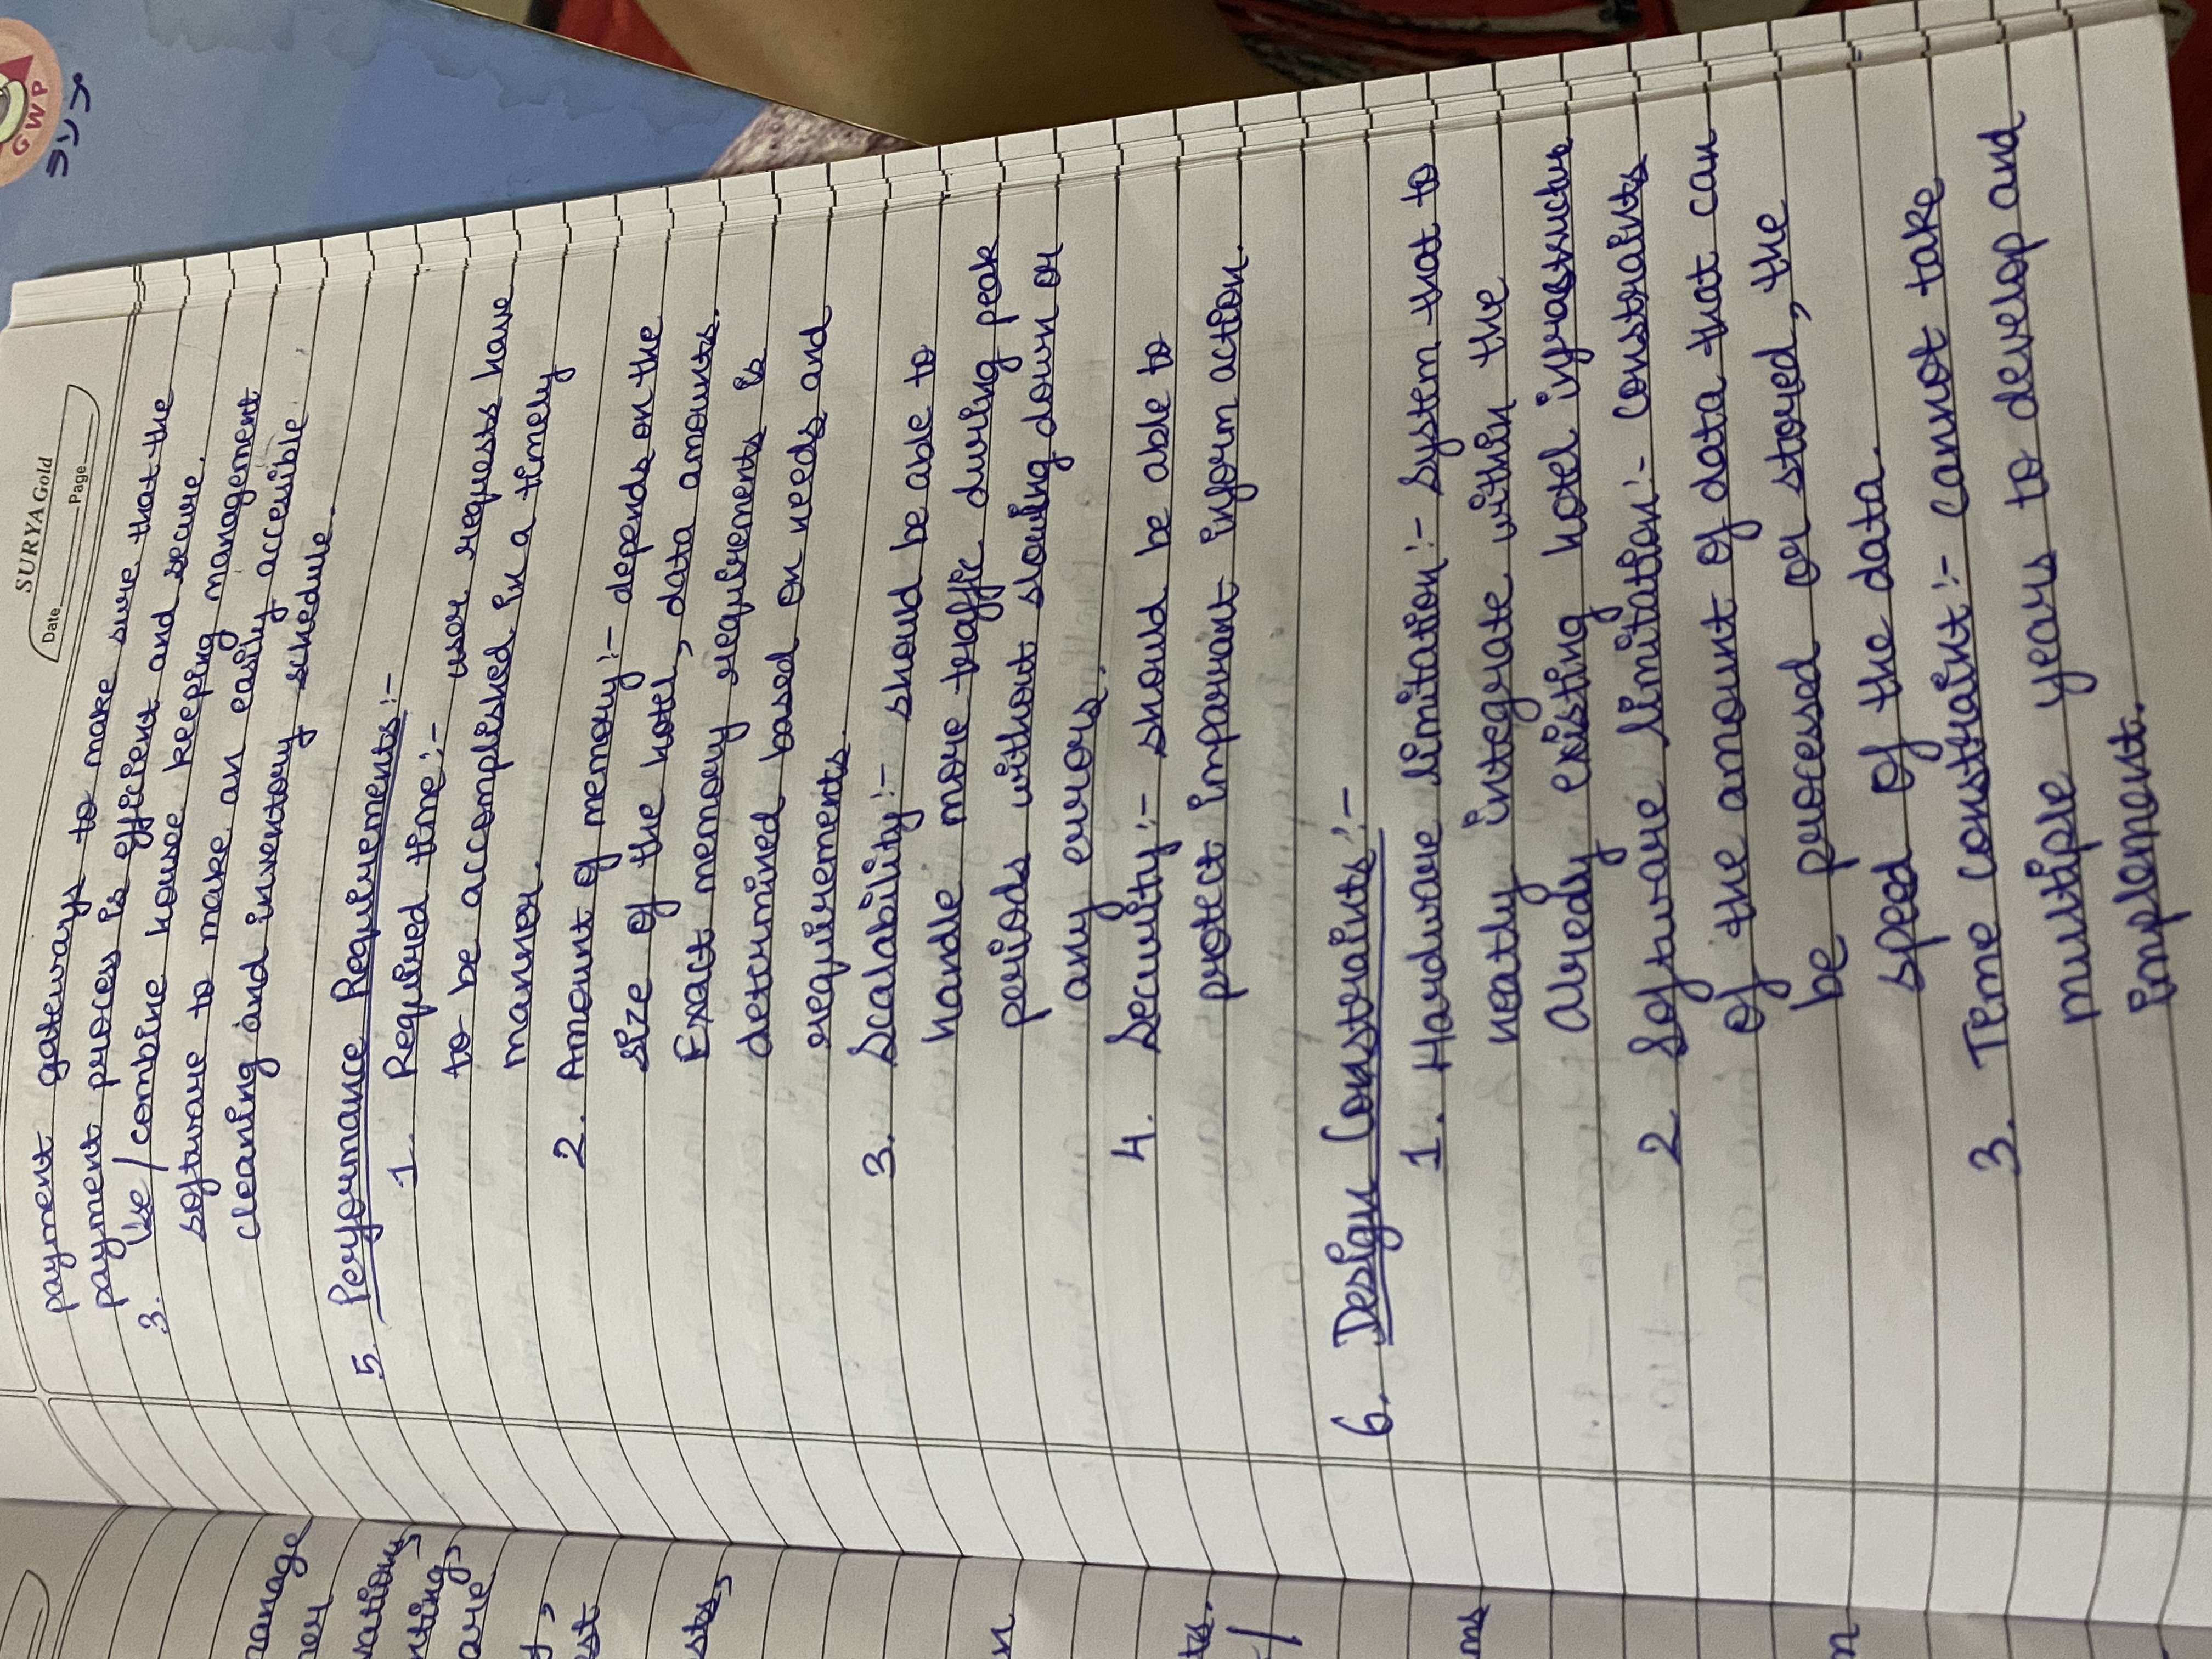 SURYA Gold
Date
Page
payment gateways to make sure that the
payment process is efficient and secure.
3. Use/combine housee keeping management
software to make an easily accessible
cleaning and inventory schedule.
5. Performance Requirements:-
1. Required time:- user requests have
to be accomplished in a timely
manner.
2. Amount of memory:- depends on the
size of the hotel, data amounts.
Exact memory requirements is
determined based on needs and
requirements.
3. Scalability:- should be able to
handle more traffic during peak
periods without slowing down or
any errors.
4. Security:- should be able to
protect imparrant inform action.
6. Design Constraints:-
1. Hardware limitation:- System that to
neatly integrate within the
Alredy existing hotel infrastructure
2. Software limitation:- constraints
of the amount of data that can
be processed or stored, the
speed of the data.
3. Time constraint:- cannot take
multiple years to develop and
implement.
manage
nting,
are
GWP
ランプ